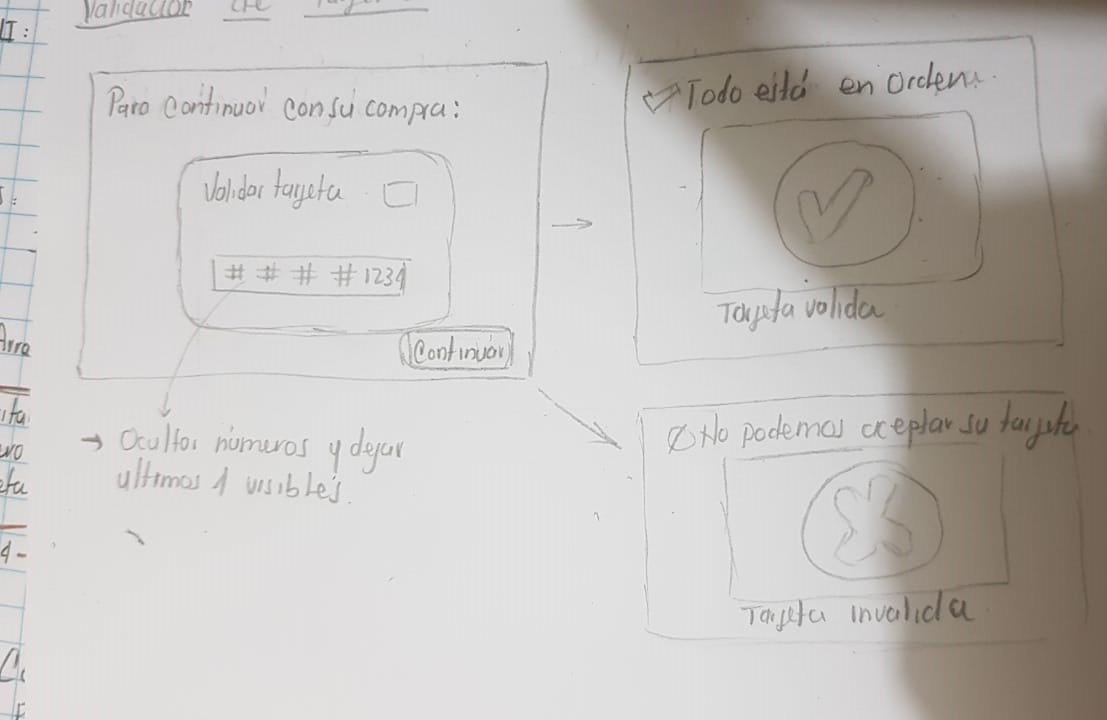 Validador de
Para continuar con su compra:
Validar tarjeta
# # # # 1234
Continuar
→ Ocultar números y dejar
ultimos 4 visibles.
Todo está en orden.
Tarjeta valida
No podemos aceptar su tarjeta
Tarjeta invalida